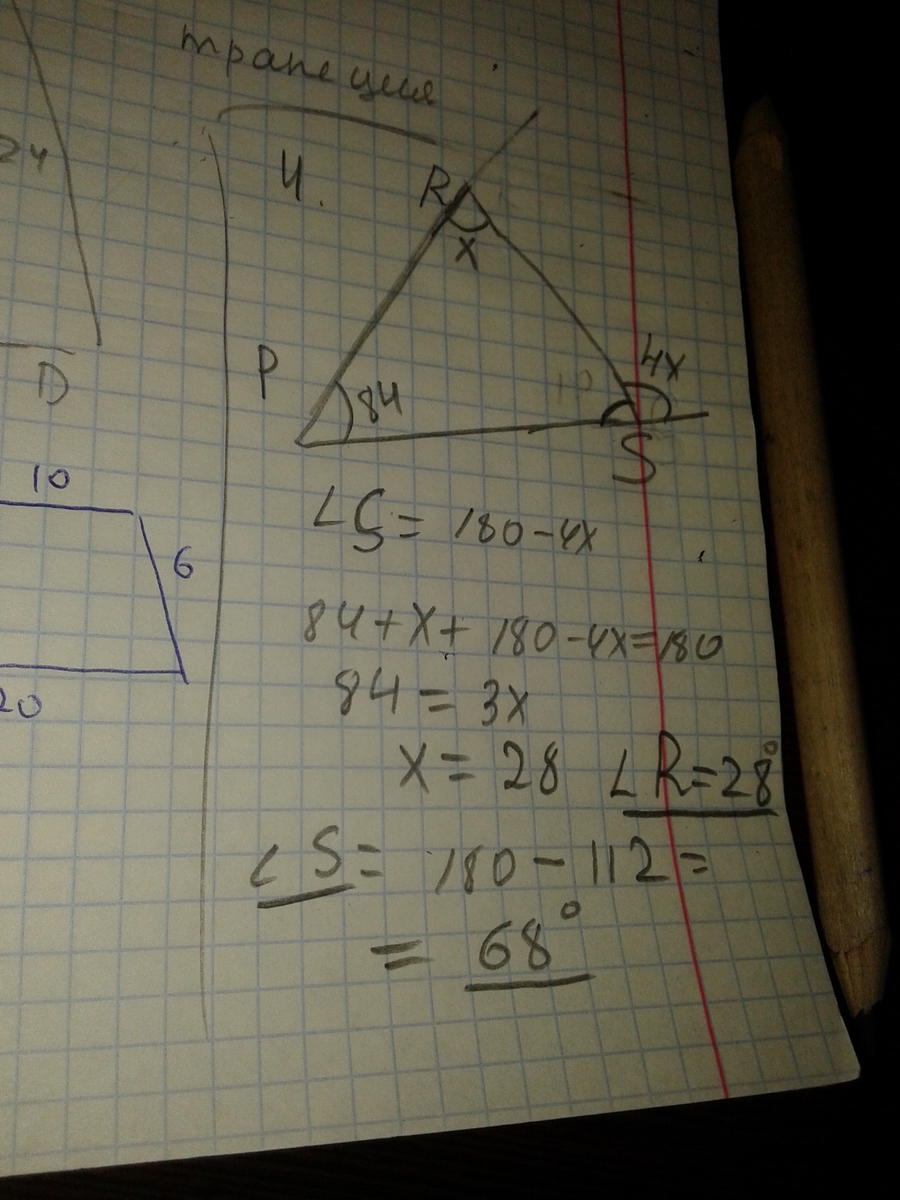 трапеция
24
4.
R
x
P
84
4x
S
D
10
6
20
∠S = 180-4x
84+x+ 180-4x=180
84 = 3x
x = 28 ∠R=28°
∠S = 180-112=
= 68°